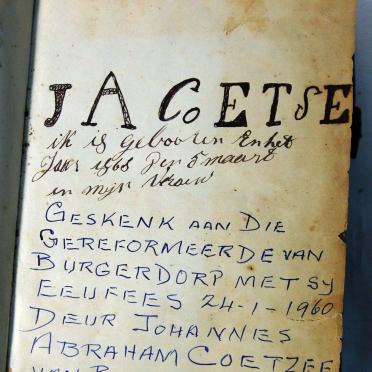 J A COETSE
ik is gebooren En het
Jaar 1868 Den 5 maart
en mijn vrouw
GESKENK AAN DIE
GEREFORMEERDE VAN
BURGERDORP MET SY
EEUFEES 24-1-1960
DEUR JOHANNES
ABRAHAM COETZEE
VAN